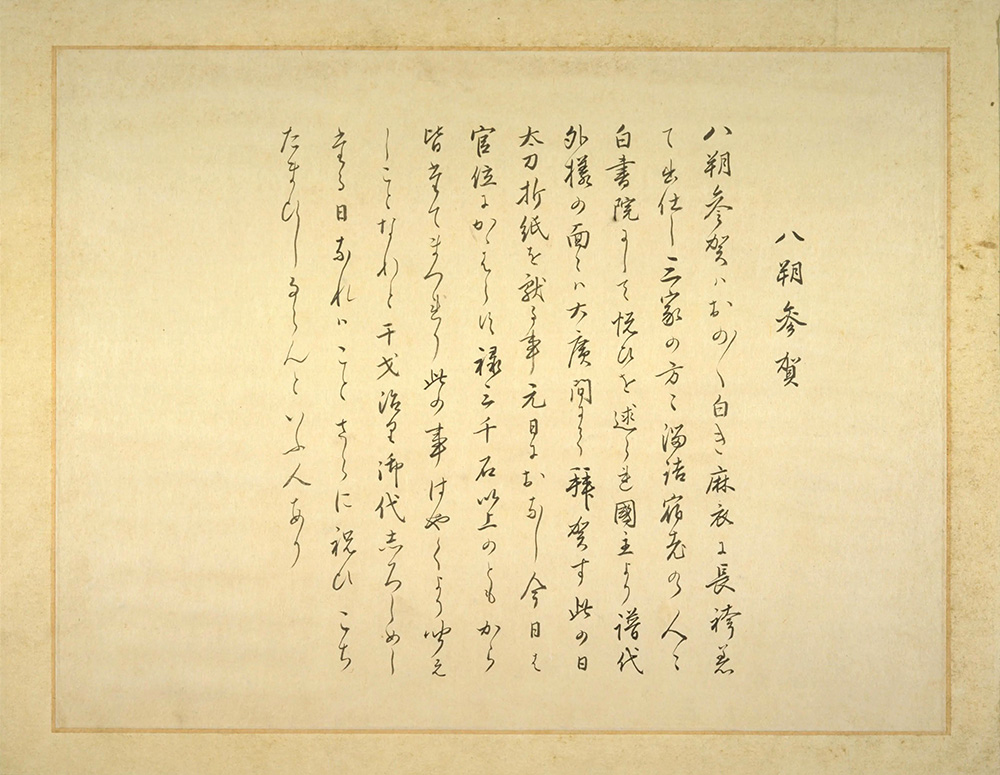 八朔參賀
八朔參賀ハおの〳〵白き麻衣に長袴着
て出仕し三家の方々溜詰宿老の人々
白書院にして悦ひを述らる國主より譜代
外様の面々ハ大廣間にて拜賀す此の日
太刀折紙を獻る事元日におなし今日は
官位にかゝはらす禄三千石以上のともから
皆奉てまつれり此の事はやくより聞え
しことなれと干戈治り御代志ろしめし
奉る日なれハことさらに祝ひこち
たまひしならんといふ人あり